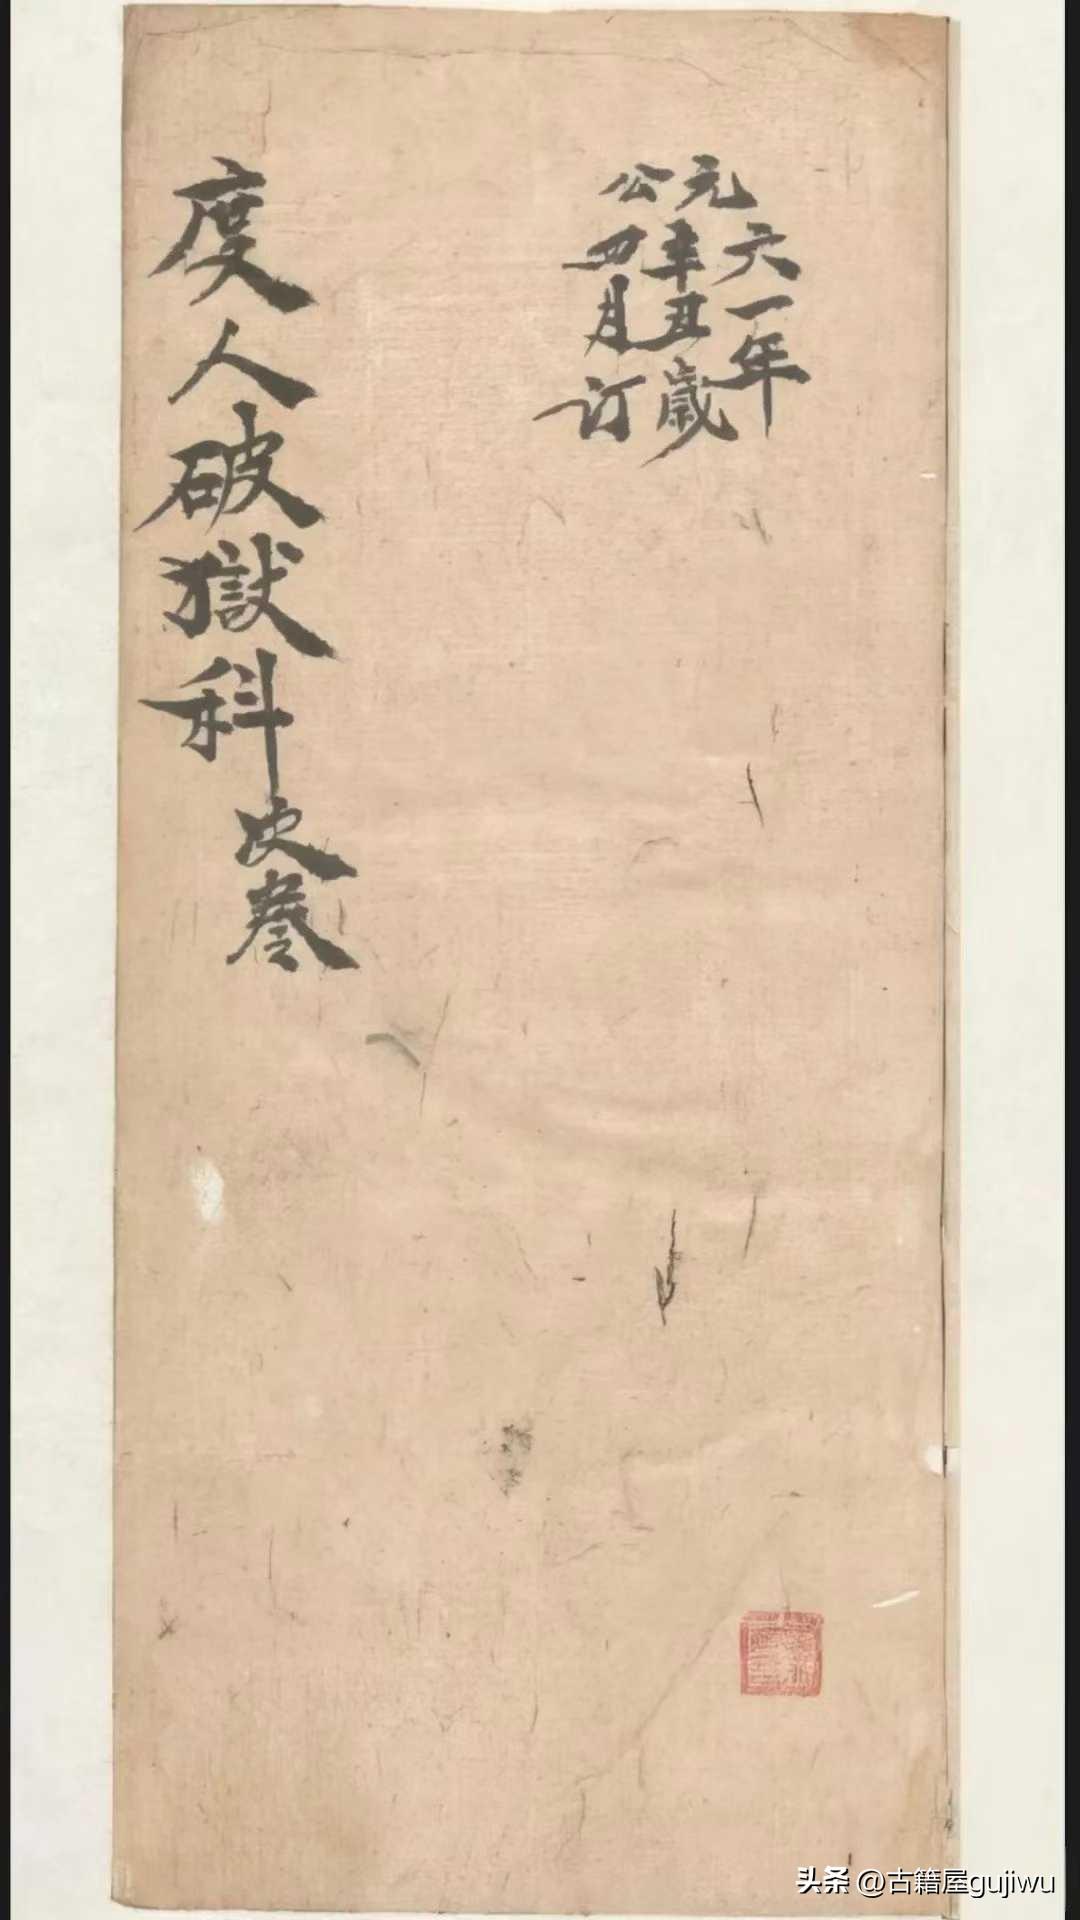 元公
六一年
辛丑歳
四月订
度人破獄科
次叁
头条 @古籍屋gujiwu